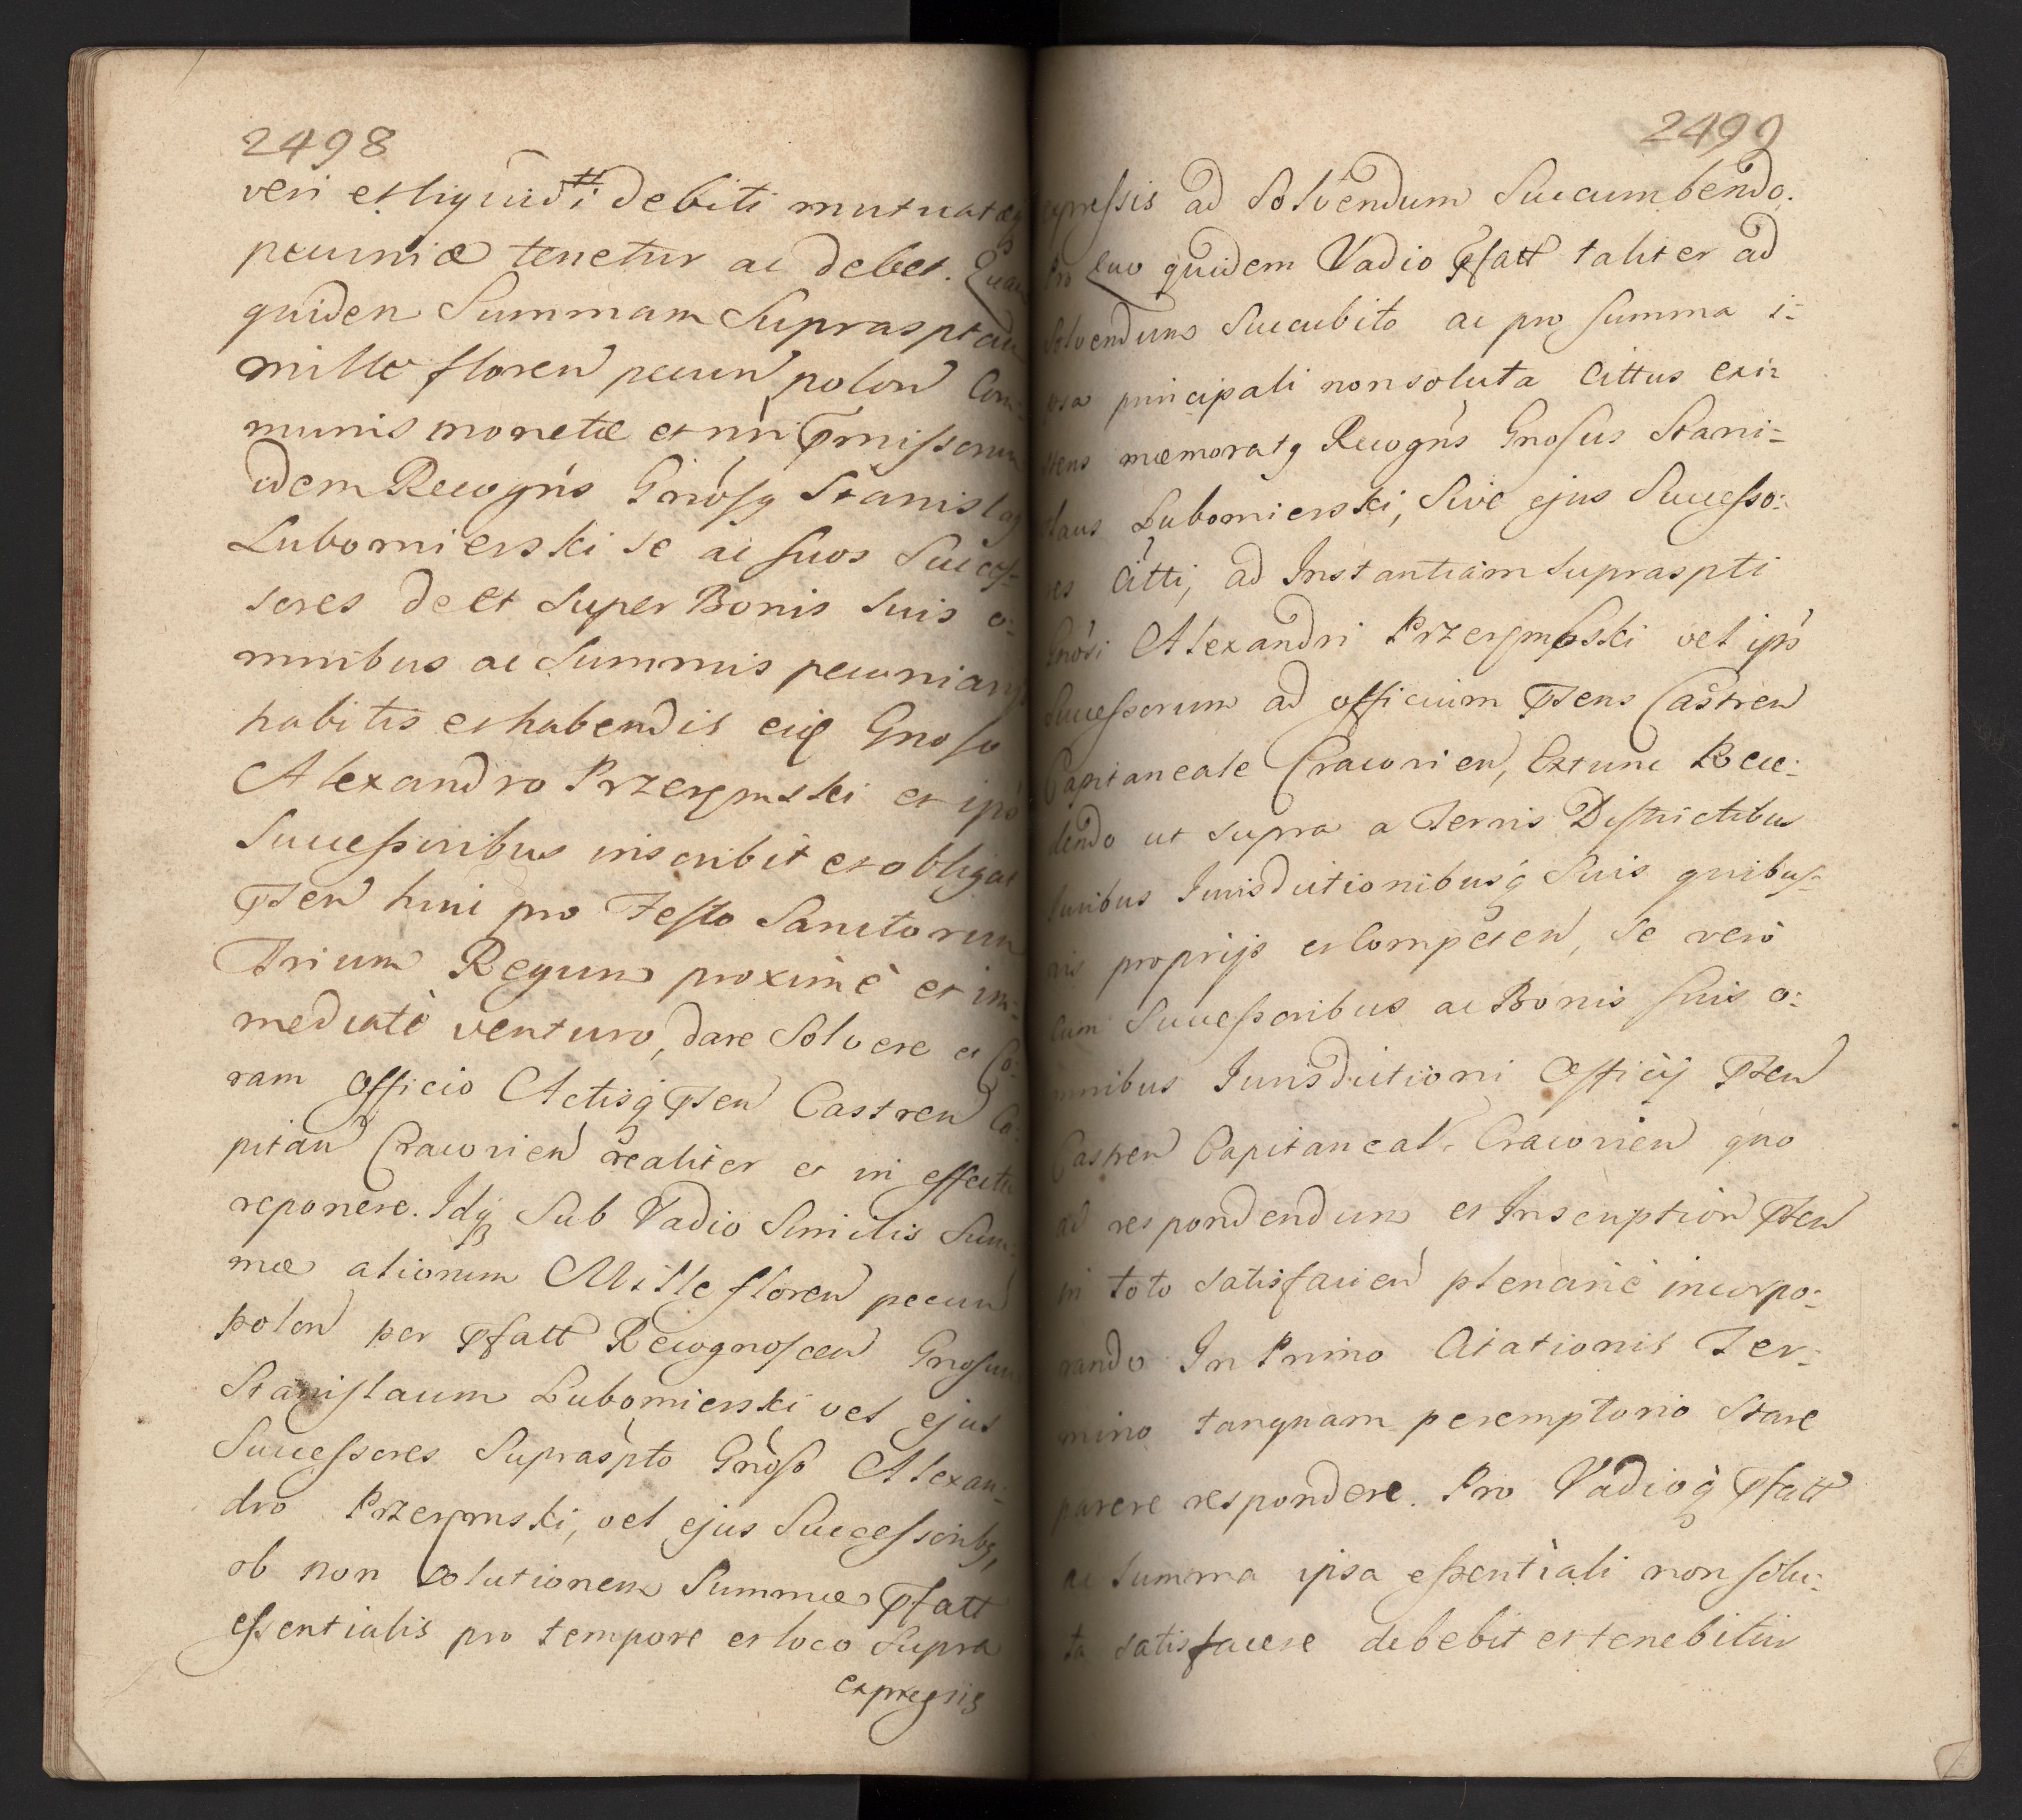 2498
veri et liquidi debiti mutuatæq
pecuniæ tenetur ac debet. Quam
quidem Summam Supraspttam
mille floren pecun polon Com-
munis monetæ et nri Pmissorum
idem Recogns Gnosq Stanislaq
Lubomierski se ac suos Succes-
sores de et super Bonis suis o-
mnibus ac Summis pecuniarijs
habitis et habendis eiq Gnoso
Alexandro Przerymski et ipo
Successoribus inscribit et obligat
Psen huic pro Festo Sanctorum
Trium Regum proximè et im-
mediatè venturo, dare Solvere et Co-
ram Officio Actisq Psen Castren Ca-
pitan Cracovien realiter et in effectu
reponere. Idq Sub Vadio Similis Sum-
mæ aliorum Mille floren pecun
polon per Pfatt Recognoscen Gnosum
Stanislaum Lubomierski vel ejus
Successores Supraspto Gnoso Alexan-
dro Przerymski, vel ejus Successoribq,
ob non Solutionem Summæ Pfatt
essentialis pro tempore et loco Supra
expressis
2499
expressis ad Solvendum Succumbendo.
Pro Quo quidem Vadio Pfatt taliter ad
Solvendum Succubito ac pro summa i-
psa principali non soluta Cittus exi-
stens mæmoratq Recogns Gnosus Stani-
slaus Lubomierski, Sive ejus Successo-
res Citti, ad Instantiam Supraspti
Gnosi Alexandri Przerymbski vel ips
Successorum ad officium Psens Castren
Capitaneale Cracovien, Extunc Rece-
dendo ut supra a Terris Districtibus
Juribus Jurisdictionibusq Suis quibus-
vis proprijs et Competen, Se verò
Cum Successoribus ac Bonis suis o-
mnibus Jurisdictioni Officij Psen
Castren Capitaneal. Cracovien quo
ad respondendum et Inscription Psen
in toto Satisfacien plenariè incorpo-
rando In Primo Citationis Ter-
mino tanquam peremptorio Stare
parere respondere. Pro Vadioq Pfatt
ac Summa ipsa essentiali non solu-
ta satisfacere debebit et tenebitur